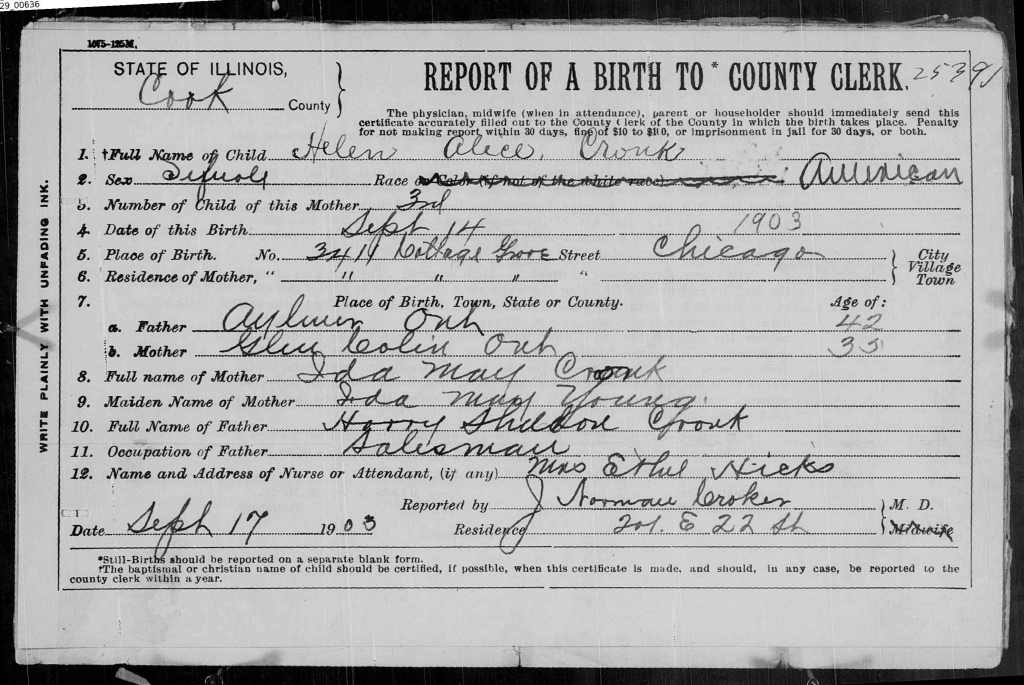 29_00636
1075-125M.
STATE OF ILLINOIS,
Cook County
REPORT OF A BIRTH TO * COUNTY CLERK. 25391
The physician, midwife (when in attendance), parent or householder should immediately send this
certificate accurately filled out to the County Clerk of the County in which the birth takes place. Penalty
for not making report within 30 days, fine of $10 to $100, or imprisonment in jail for 30 days, or both.
1. †Full Name of Child Helen Alice Cronk
2. Sex Female Race or Color (if not of the white race) American
3. Number of Child of this Mother 3rd
4. Date of this Birth Sept 14 1903
5. Place of Birth. No. 3411 Cottage Grove Street Chicago City
6. Residence of Mother, " " " " " Village
Town
7. Place of Birth, Town, State or County. Age of:
a. Father Aylmer Ont 42
b. Mother Glen Colin Ont 35
8. Full name of Mother Ida May Cronk
9. Maiden Name of Mother Ida May Young.
10. Full Name of Father Harry Sheldon Cronk
11. Occupation of Father Salesman
12. Name and Address of Nurse or Attendant, (if any) Mrs Ethel Hicks
Reported by J Norman Croker M. D.
Date Sept 17 1903 Residence 201. E 22 St Midwife
*Still-Births should be reported on a separate blank form.
†The baptismal or christian name of child should be certified, if possible, when this certificate is made, and should, in any case, be reported to the
county clerk within a year.
WRITE PLAINLY WITH UNFADING INK.